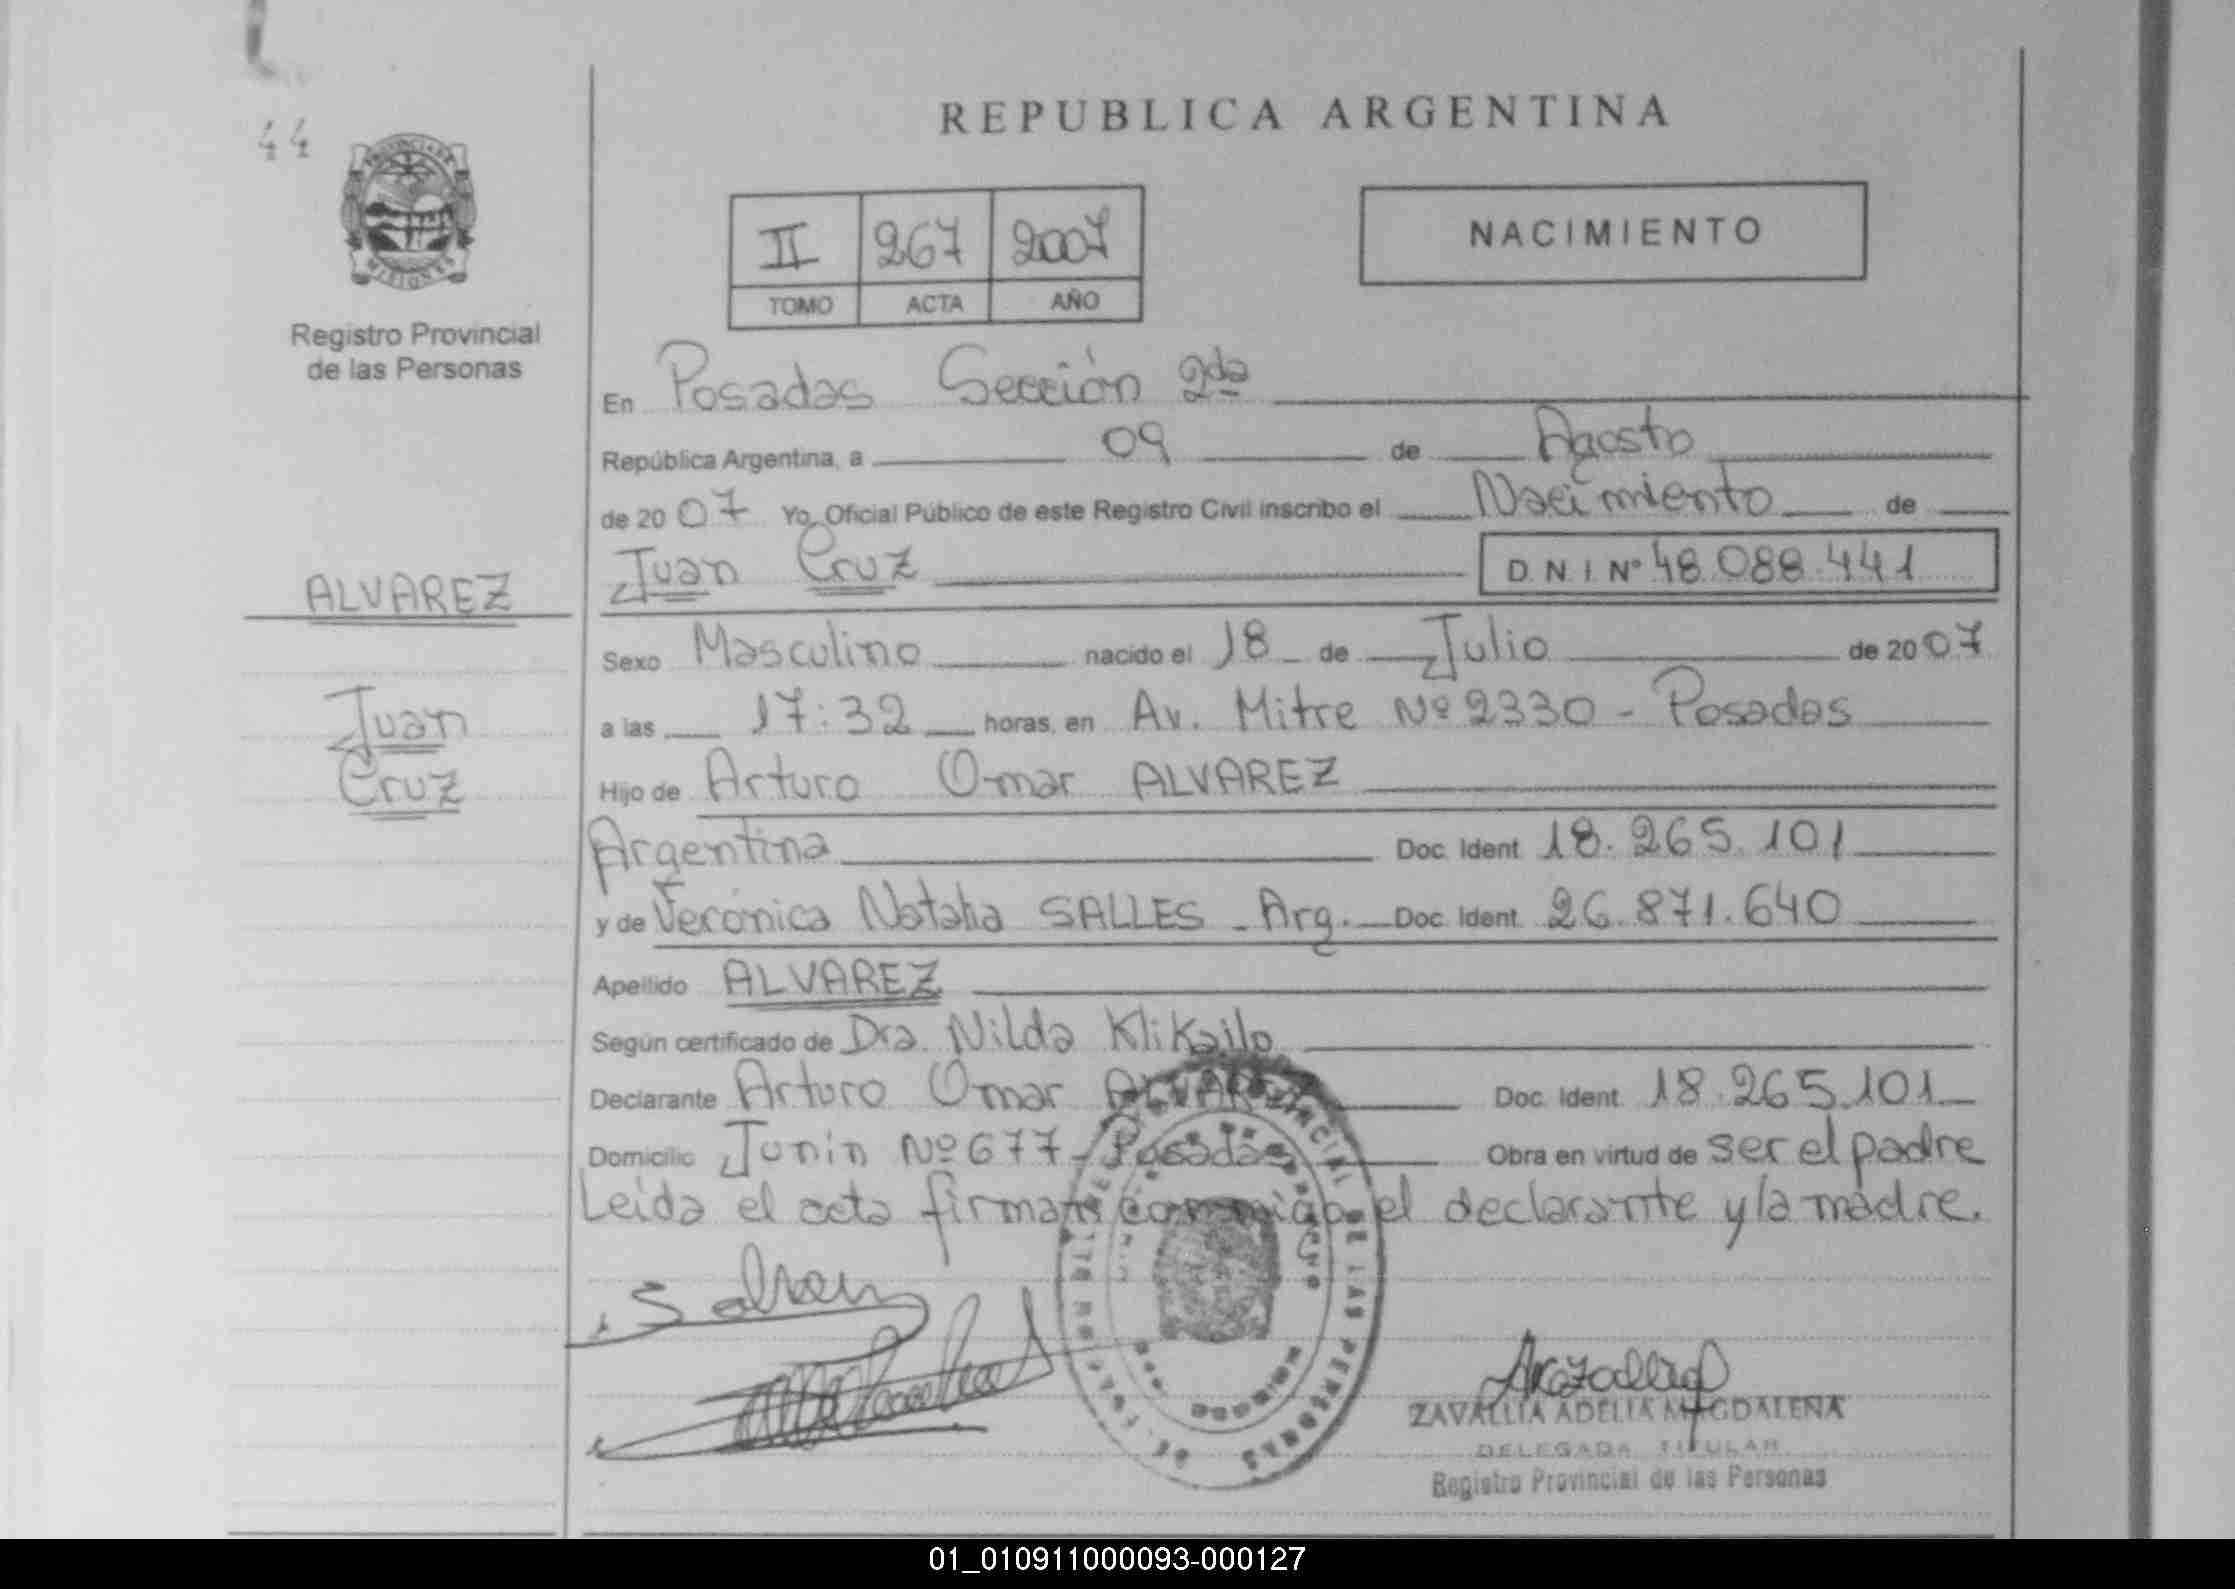 REPUBLICA ARGENTINA
44
PROVINCIA DE MISIONES
Registro Provincial
de las Personas
II 267 2007
TOMO ACTA AÑO
NACIMIENTO
En Posadas Sección 2da
República Argentina, a 09 de Agosto
de 2007 Yo, Oficial Público de este Registro Civil inscribo el Nacimiento de
Juan Cruz D.N.I. Nº 48.088.441
ALVAREZ
Juan
Cruz
Sexo Masculino nacido el 18 de Julio de 2007
a las 17:32 horas, en Av. Mitre Nº 2330 - Posadas
Hijo de Arturo Omar ALVAREZ
Argentina Doc. Ident. 18.265.101
y de Verónica Natalia SALLES - Arg. Doc. Ident. 26.871.640
Apellido ALVAREZ
Según certificado de Dra. Nilda Klikailo
Declarante Arturo Omar ALVAREZ Doc. Ident. 18.265.101
Domicilio Junin Nº 677 - Posadas Obra en virtud de ser el padre
Leida el acta firman conmigo el declarante y la madre.
ZAVALLIA ADELIA MAGDALENA
DELEGADA TITULAR
Registro Provincial de las Personas
01_010911000093-000127